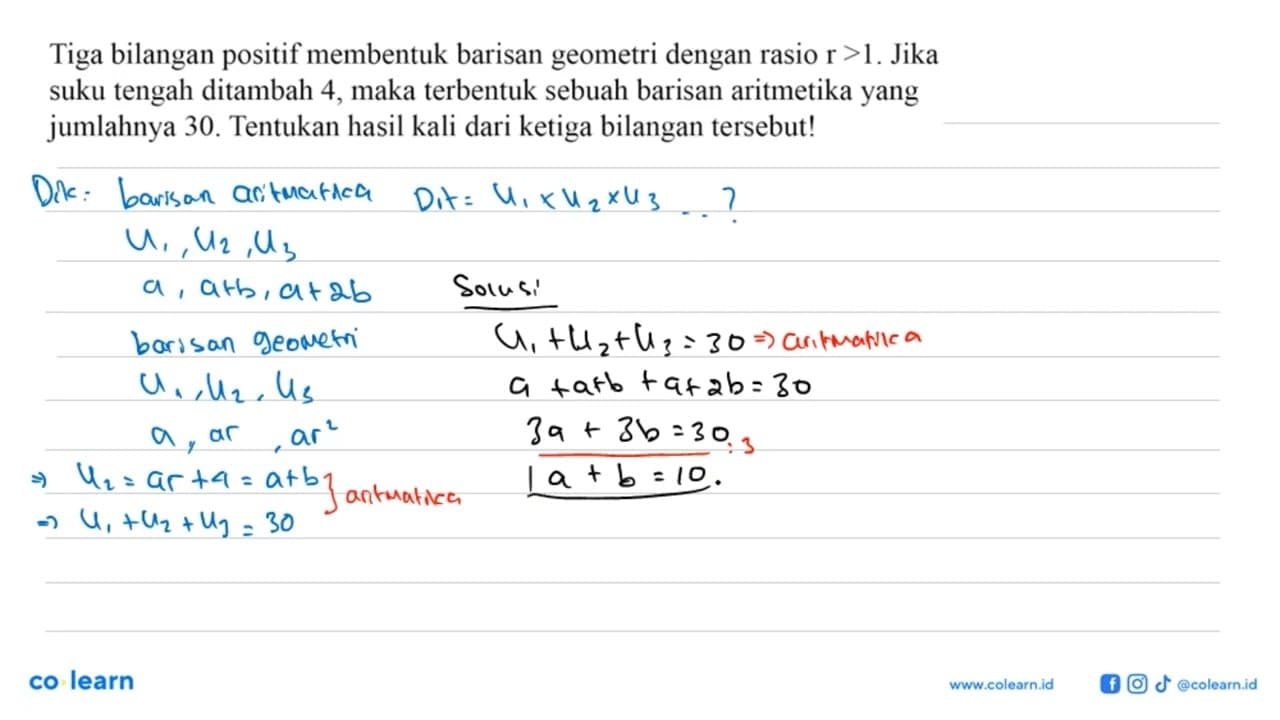 Tiga bilangan positif membentuk barisan geometri dengan rasio r >1. Jika
suku tengah ditambah 4, maka terbentuk sebuah barisan aritmetika yang
jumlahnya 30. Tentukan hasil kali dari ketiga bilangan tersebut!
Dik: barisan aritmatika
U₁, U₂, U₃
a, a+b, a+2b
barisan geometri
U₁, U₂, U₃
a, ar, ar²
⇒ U₂ = ar + 4 = a+b } aritmatika
⇒ U₁ + U₂ + U₃ = 30
Dit = U₁ × U₂ × U₃ ...?
Solusi
U₁ + U₂ + U₃ = 30 ⇒ aritmatika
a + a+b + a+2b = 30
3a + 3b = 30 :3
1a + b = 10.
co learn
www.colearn.id
@colearn.id